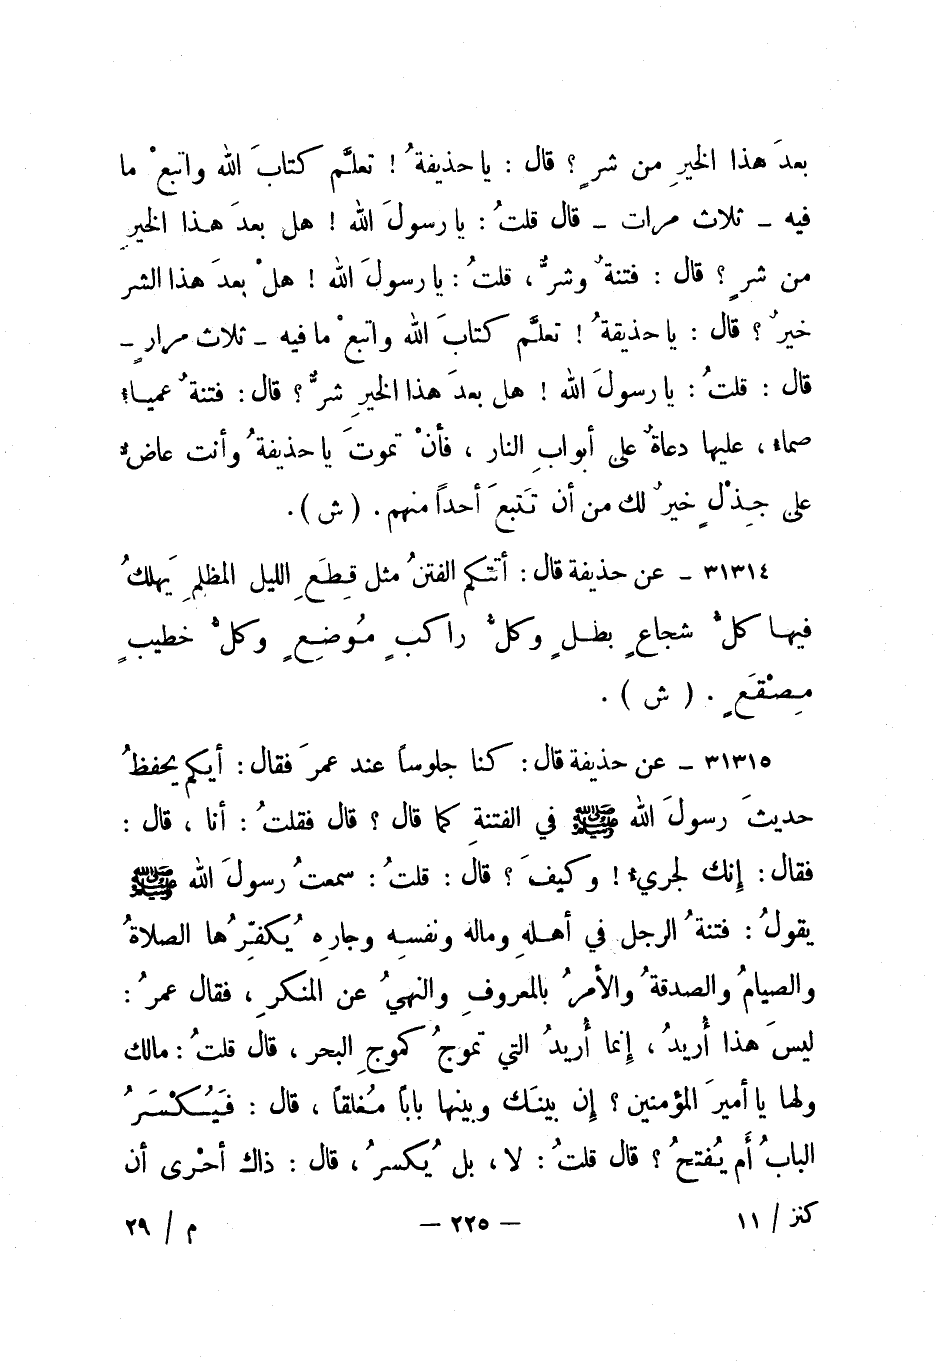 بعدَ هذا الخيرِ من شرٍ ؟ قال : يا حذيفةُ ! تعلَّم كتابَ الله واتبعْ ما
فيه ـ ثلاث مرات ـ قال قلتُ : يا رسولَ الله ! هل بعدَ هذا الخيرِ
من شرٍ ؟ قال : فتنةٌ وشرٌّ ، قلتُ : يا رسولَ الله ! هلْ بعدَ هذا الشر
خيرٌ ؟ قال : يا حذيقةُ ! تعلَّم كتابَ الله واتبعْ ما فيه ـ ثلاث مرارٍ ـ
قال : قلتُ : يا رسولَ الله ! هل بعدَ هذا الخيرِ شرٌّ ؟ قال : فتنةٌ عمياءُ
صماءُ ، عليها دعاةٌ على أبوابِ النار ، فأنْ تموتَ يا حذيفةُ وأنت عاضٌّ
على جِذْلٍ خيرٌ لك من أن تَتبعَ أحداً منهم . ( ش ) .
٣١٣١٤ ـ عن حذيفة قال : أتتكم الفتنُ مثل قِطَعِ الليل المظلمِ يَهلكُ
فيها كلُّ شجاعٍ بطلٍ وكلُّ راكبٍ مُوضِعٍ وكلُّ خطيبٍ
مِصْقَعٍ . ( ش ) .
٣١٣١٥ ـ عن حذيفة قال : كنا جلوساً عند عمرَ فقال : أيكم يحفظُ
حديثَ رسولَ الله ﷺ في الفتنةِ كما قال ؟ قال فقلتُ : أنا ، قال :
فقال : إنك لجريءُ ! وكيفَ ؟ قال : قلتُ : سمعتُ رسولَ الله ﷺ
يقولُ : فتنةُ الرجل في أهلهِ وماله ونفسِه وجارِه يُكفِّرُها الصلاةُ
والصيامُ والصدقةُ والأمرُ بالمعروفِ والنهيُ عن المنكرِ ، فقال عمرُ :
ليسَ هذا أُريدُ ، إنما أُريدُ التي تموجُ كموجِ البحر ، قال قلتُ : مالك
ولها يا أميرَ المؤمنين ؟ إن بينَك وبينها باباً مُغلقاً ، قال : فَيُكْسَرُ
البابُ أَم يُفتحُ ؟ قال قلتُ : لا ، بل يُكسرُ ، قال : ذاك أحْرى أن
كنز / ١١ — ٢٢٥ — م / ٢٩